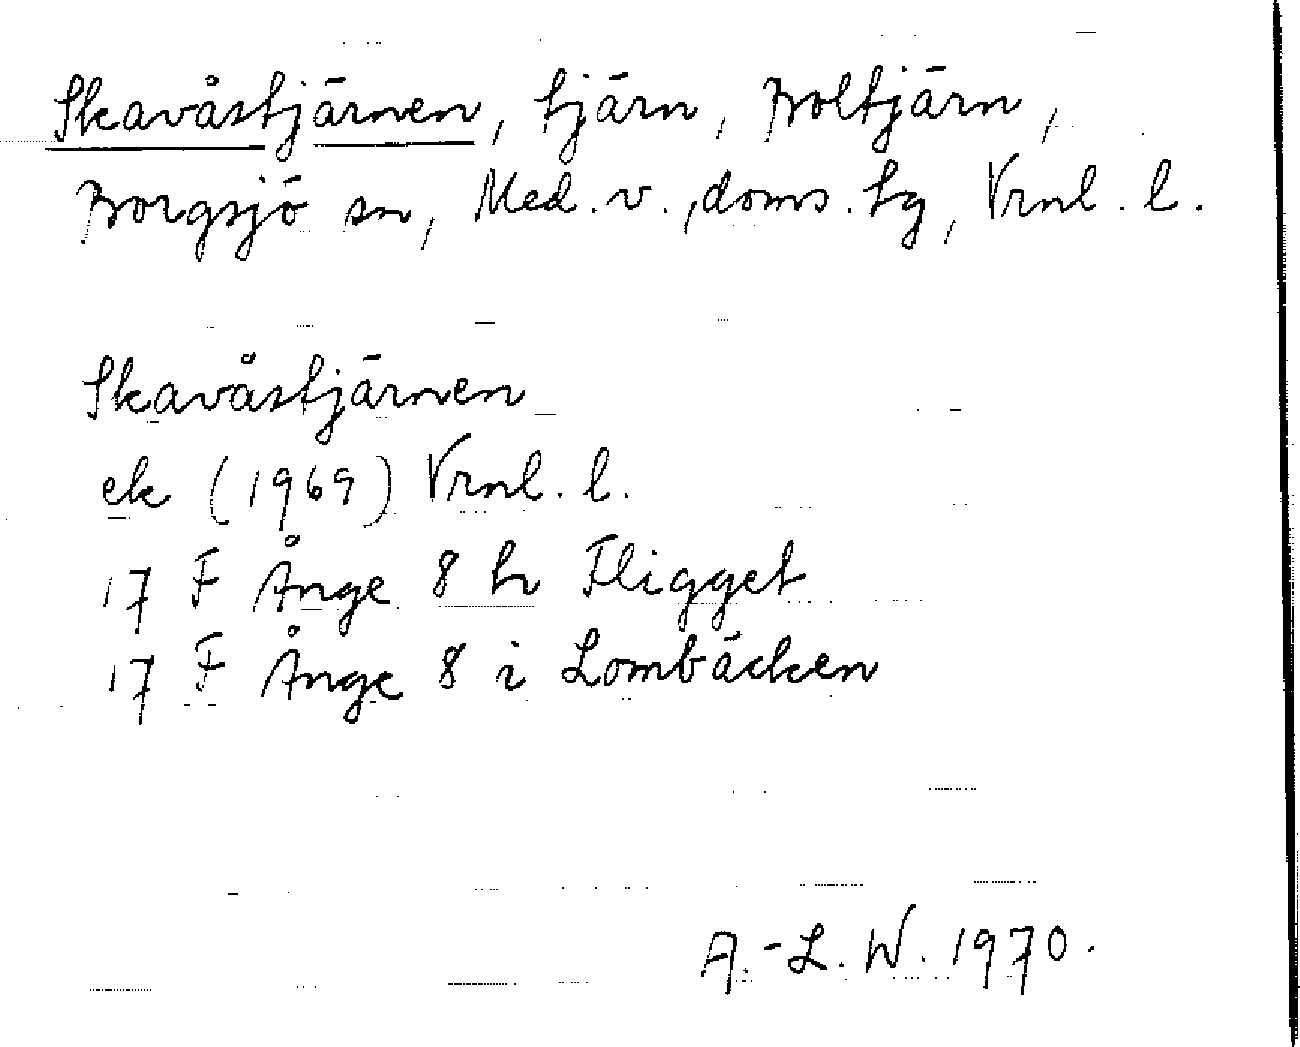 Skavåstjärnen, tjärn, Boltjärn,
Borgsjö sn, Med. v., doms. tg, Vrnl. l.
Skavåstjärnen
ek (1969) Vrnl. l.
17 F Ånge 8 h Fligget
17 F Ånge 8 i Lombäcken
A.-L. W. 1970.